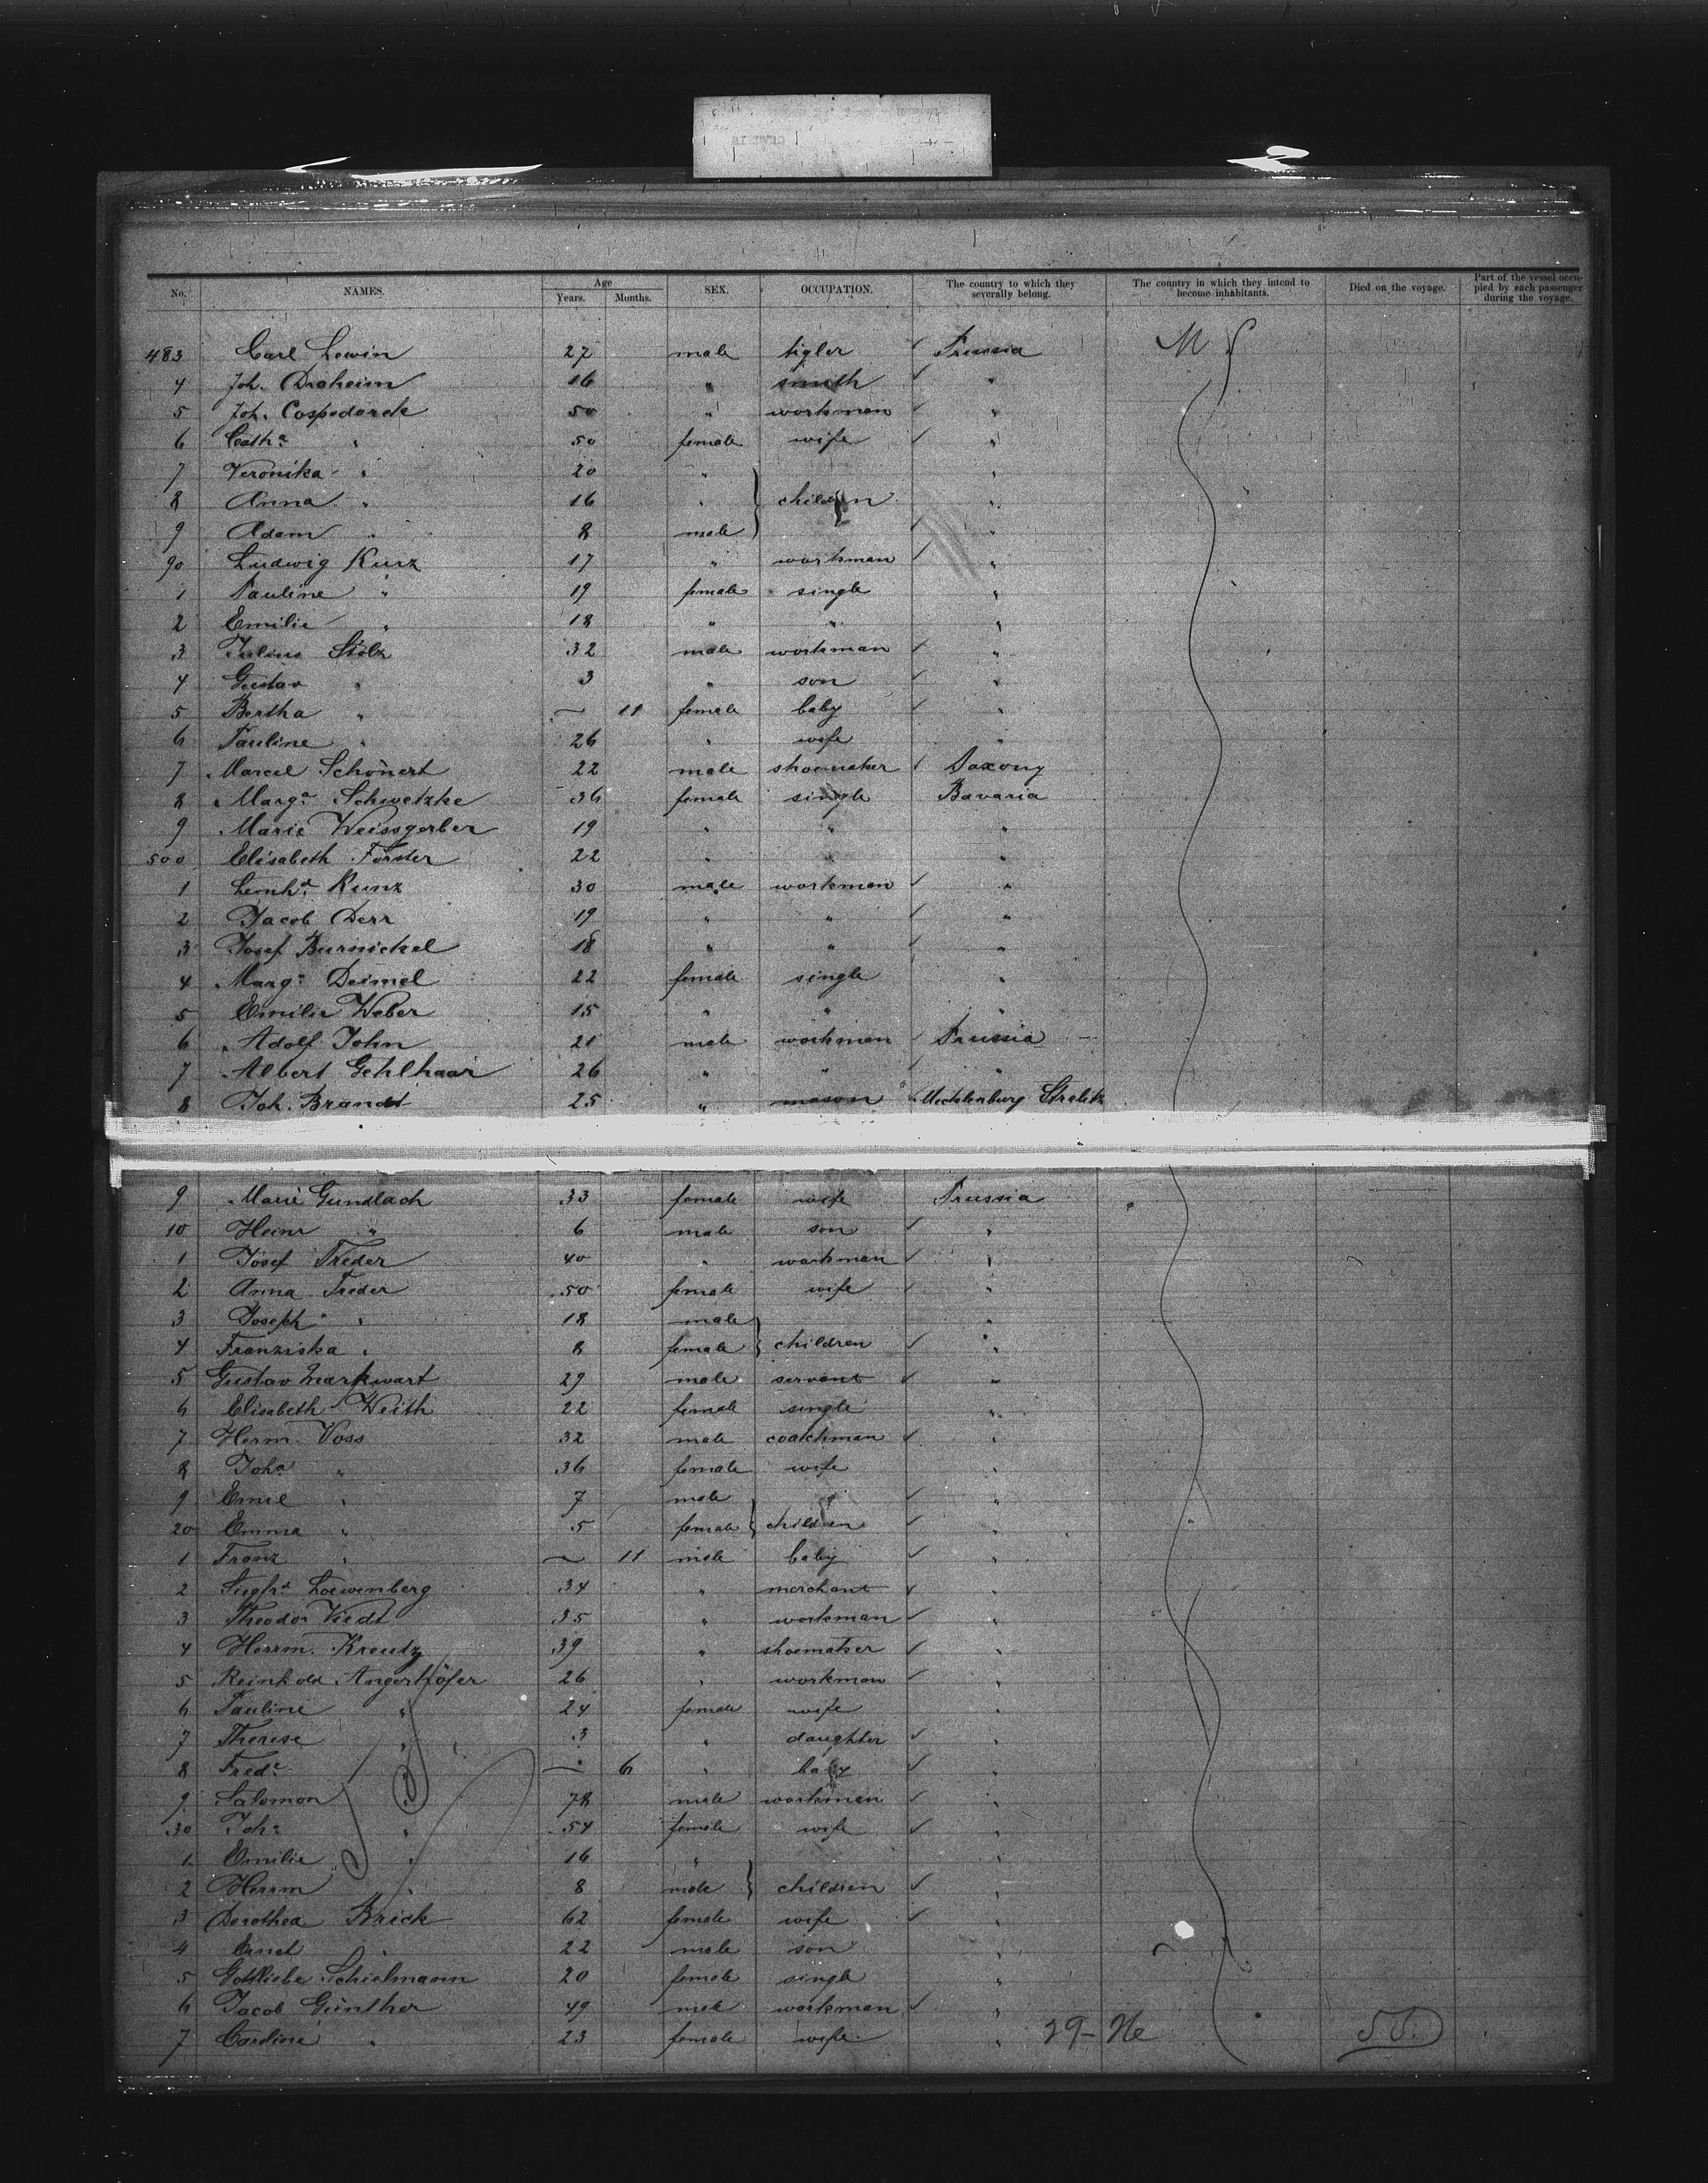 No. NAMES. Age Years. Months. SEX. OCCUPATION. The country to which they severally belong. The country in which they intend to become inhabitants. Died on the voyage. Part of the vessel occupied by each passenger during the voyage.
483 Carl Lewin 27 male tigler Prussia
4 Joh. Draheim 16 " smith "
5 Joh. Cospodarek 50 " workman "
6 Catha " 50 female wife "
7 Veronika " 20 " "
8 Anna " 16 " children "
9 Adam " 8 male "
90 Ludwig Kurz 17 " workman "
1 Pauline " 19 female single "
2 Emilie " 18 " " "
3 Julius Stolz 32 male workman "
4 Gustav " 3 " son "
5 Bertha " ~ 11 female baby "
6 Pauline " 26 " wife "
7 Marcel Schönert 22 male shoemaker Saxony
8 Marga Schwetzke 36 female single Bavaria
9 Marie Weissgerber 19 " " "
500 Elisabeth Förster 22 " " "
1 Leonhd Kunz 30 male workman "
2 Jacob Derr 19 " " "
3 Josef Burnickel 18 " " "
4 Marga Deimel 22 female single "
5 Emilie Weber 15 " " "
6 Adolf John 21 male workman Prussia
7 Albert Gehlhaar 26 " " "
8 Joh. Brandt 25 " mason Mecklenburg Strelitz
9 Marie Gundlach 33 female wife Prussia
10 Heinr " 6 male son "
1 Josef Treder 40 " workman "
2 Anna Treder 50 female wife "
3 Joseph " 18 male "
4 Franziska " 8 female children "
5 Gustav Markwart 29 male servant "
6 Elisabeth Weith 22 female single "
7 Herm. Voss 32 male coatchman "
8 Joha " 36 female wife "
9 Emil " 7 male "
20 Emma " 5 female children "
1 Franz " ~ 11 male baby "
2 Siegfrd Loewenberg 34 " merchant "
3 Theodor Viedt 35 " workman "
4 Herrm. Kreutz 39 " shoemaker "
5 Reinhold Angerhöfer 26 " workman "
6 Pauline " 24 female wife "
7 Therese " 3 " daughter "
8 Freda " — 6 " baby "
9 Salomon " 78 male workman "
30 Joha " 54 female wife "
1 Emilie " 16 " "
2 Herrm " 8 male children "
3 Dorothea Brick 62 female wife "
4 Ernst " 22 male son "
5 Gottliebe Schielmann 20 female single "
6 Jacob Günther 49 male workman "
7 Caroline " 23 female wife "